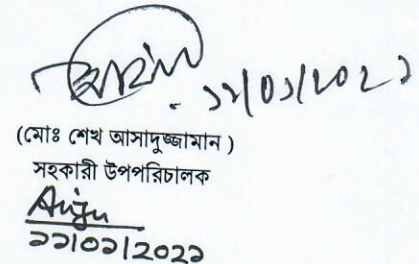 ১১/০১/২০২১
(মোঃ শেখ আসাদুজ্জামান )
সহকারী উপপরিচালক
Anju
১১/০১/২০২১